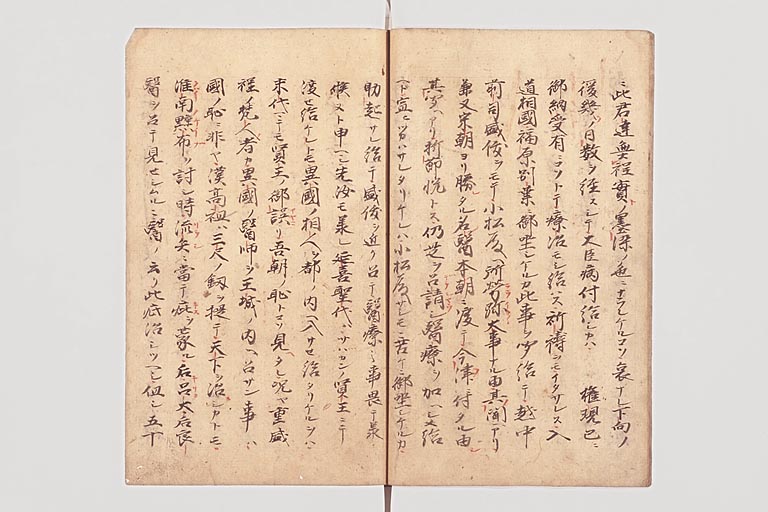 ニ此君達無程實ノ墨染ノ色ニナラレケルコソ哀ナレト下向ノ
後幾ノ日数ヲ経スシテ大臣病付給シカハ 権現已ニ
御納受有ニコソトテ療治モシ給ハス祈祷ヲモイタサレス入
道相國福原別業ニ御坐シケルカ此事ヲ聞給テ越中
前司盛俊ヲモテ小松殿ヘ所労弥大事ナル由其聞アリ
兼又宋朝ヨリ勝タル名醫本朝ニ渡テ今津ニ付タル由
其聞ヘアリ折節悦トス仍是ヲ召請シ醫療ヲ加ヘシメ給
ヘト宣ニツカハサレタリケレハ小松殿サシモ苦ケニ御坐シケルカ
助起サレ給テ盛俊ヲ近ク召テ醫療ノ事畏テ承
候ヌト申ヘシ先汝モ承レ延喜聖代ハサハカンノ賢王ニテ
渡セ給ケレトモ異國ノ相人ヲ都ノ内ヘ入サセ給タリケルヲハ
末代ニテモ賢王ノ御誤リ吾朝ノ恥トコソ見タレ况ヤ重盛
程ノ凡人者カ異國ノ醫師ヲ王城ノ内ヘ召サン事ハ
國ノ恥ニ非ヤ漢高祖ハ三尺ノ釼ヲ提テ天下ヲ治シカトモ
淮南黥布ヲ討シ時流矢ニ當テ疵ヲ蒙ル后呂太后良
醫ヲ召テ見セシムルニ醫ノ云ク此疵治シツヘシ但シ五十